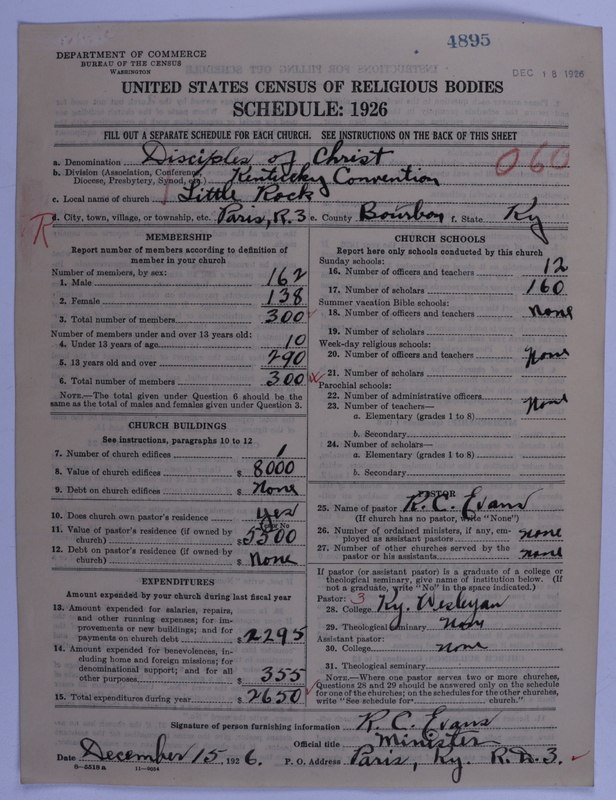 4895
DEC 18 1926
DEPARTMENT OF COMMERCE
BUREAU OF THE CENSUS
WASHINGTON
UNITED STATES CENSUS OF RELIGIOUS BODIES
SCHEDULE: 1926
FILL OUT A SEPARATE SCHEDULE FOR EACH CHURCH. SEE INSTRUCTIONS ON THE BACK OF THIS SHEET
a. Denomination Disciples of Christ
060
b. Division (Association, Conference, Diocese, Presbytery, Synod, etc.) Kentucky Convention
c. Local name of church Little Rock
d. City, town, village, or township, etc. Paris, R.3 e. County Bourbon f. State Ky
R
MEMBERSHIP
Report number of members according to definition of
member in your church
Number of members, by sex:
1. Male 162
2. Female 138
3. Total number of members 300
Number of members under and over 13 years old:
4. Under 13 years of age 10
5. 13 years old and over 290
6. Total number of members 300
NOTE.—The total given under Question 6 should be
same as the total of males and females given under Question 3.
CHURCH BUILDINGS
See instructions, paragraphs 10 to 12
7. Number of church edifices 1
8. Value of church edifices $ 8000
9. Debt on church edifices $ None
10. Does church own pastor's residence yes
Yes or No
11. Value of pastor's residence (if owned by
church) $ 5500
12. Debt on pastor's residence (if owned by
church) $ None
EXPENDITURES
Amount expended by your church during last fiscal year
13. Amount expended for salaries, repairs,
and other running expenses; for im-
provements or new buildings; and for
payments on church debt $ 2295
14. Amount expended for benevolences, in-
cluding home and foreign missions; for
denominational support; and for all
other purposes $ 355
15. Total expenditures during year $ 2650
CHURCH SCHOOLS
Report here only schools conducted by this church
Sunday schools:
16. Number of officers and teachers 12
17. Number of scholars 160
Summer vacation Bible schools:
18. Number of officers and teachers None
19. Number of scholars
Week-day religious schools:
20. Number of officers and teachers None
21. Number of scholars
Parochial schools:
22. Number of administrative officers
23. Number of teachers— None
a. Elementary (grades 1 to 8)
b. Secondary
24. Number of scholars—
a. Elementary (grades 1 to 8)
b. Secondary
PASTOR
25. Name of pastor R. C. Evans
(If church has no pastor, write "None")
26. Number of ordained ministers, if any, em-
ployed as assistant pastors none
27. Number of other churches served by the
pastor or his assistants none
If pastor (or assistant pastor) is a graduate of a college or
theological seminary, give name of institution below. (If
not a graduate, write "No" in the space indicated.)
Pastor: 3
28. College Ky. Wesleyan
29. Theological seminary
Assistant pastor:
30. College none
31. Theological seminary
NOTE.—Where one pastor serves two or more churches,
Questions 28 and 29 should be answered only on the schedule
for one of the churches; on the schedules for the other churches,
write "See schedule for church."
Signature of person furnishing information R. C. Evans
Official title Minister
Date December 15 1926. P. O. Address Paris, Ky. R.R. 3.
8-5518 a